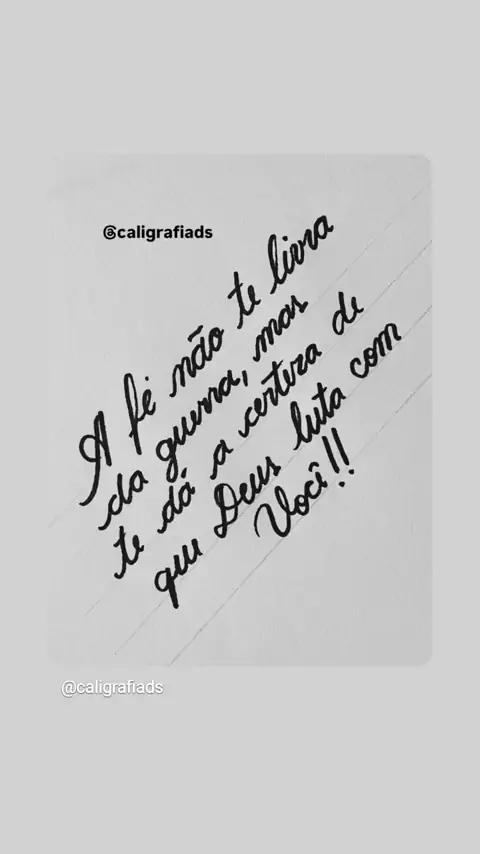 @caligrafiads
A fé não te livra
da guerra, mas
te dá a certeza de
que Deus luta com
Você!!
@caligrafiads